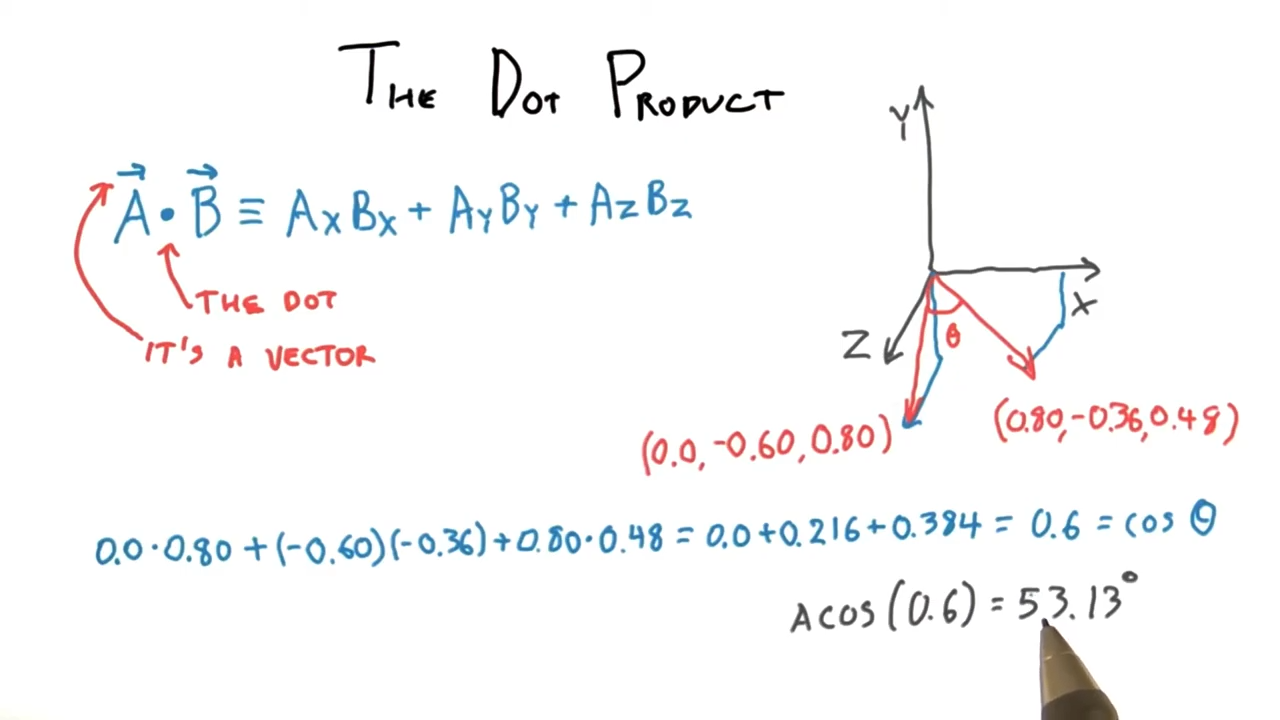 THE DOT PRODUCT
Y
A • B ≡ AxBx + AyBy + AzBz
THE DOT
X
IT'S A VECTOR
Z
θ
(0.0, -0.60, 0.80)
(0.80, -0.36, 0.48)
0.0 · 0.80 + (-0.60)(-0.36) + 0.80 · 0.48 = 0.0 + 0.216 + 0.384 = 0.6 = cos θ
ACOS (0.6) = 53.13°